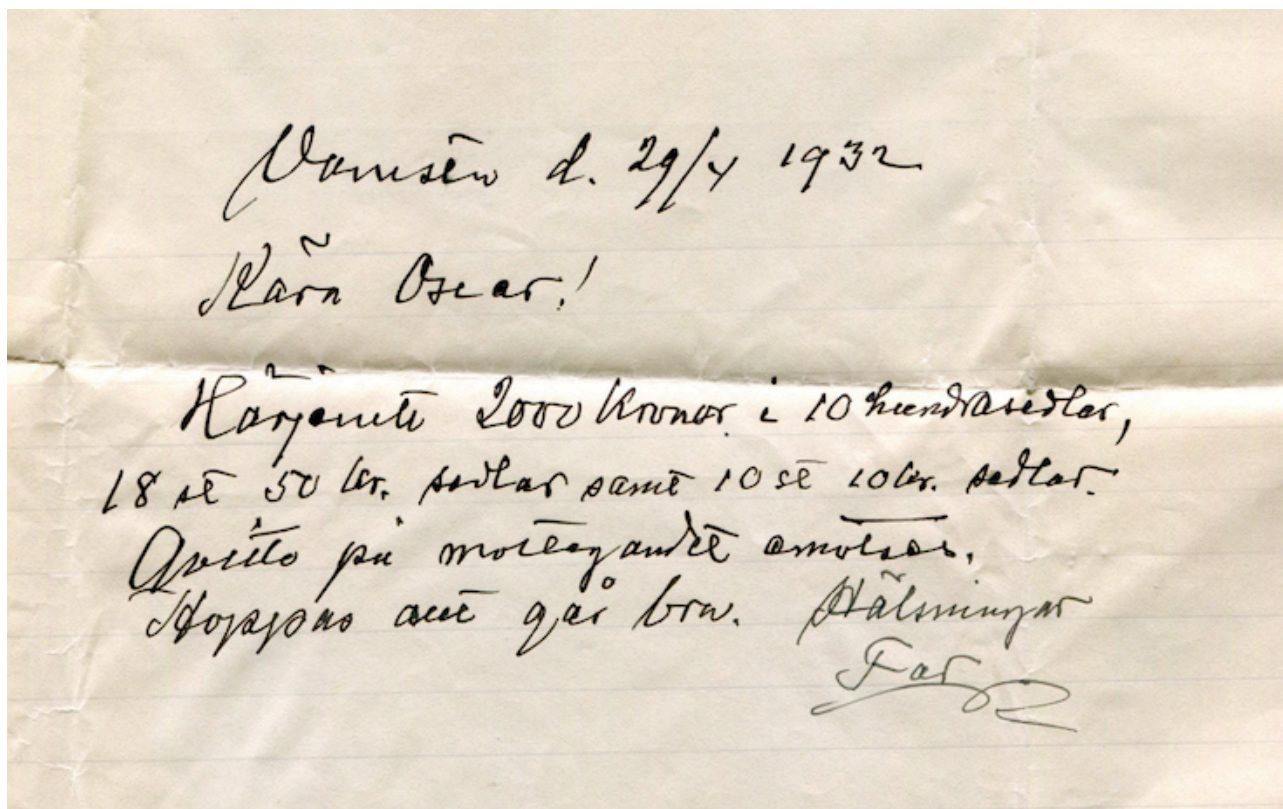 Vamsen d. 29/4 1932
Kära Oscar!
Härjemte 2000 Kronor i 10 hundrasedlar,
18 st 50 kr. sedlar samt 10 st 10 kr. sedlar.
Qvitto på mottagandet emotses.
Hoppas allt går bra. Hälsningar
Far